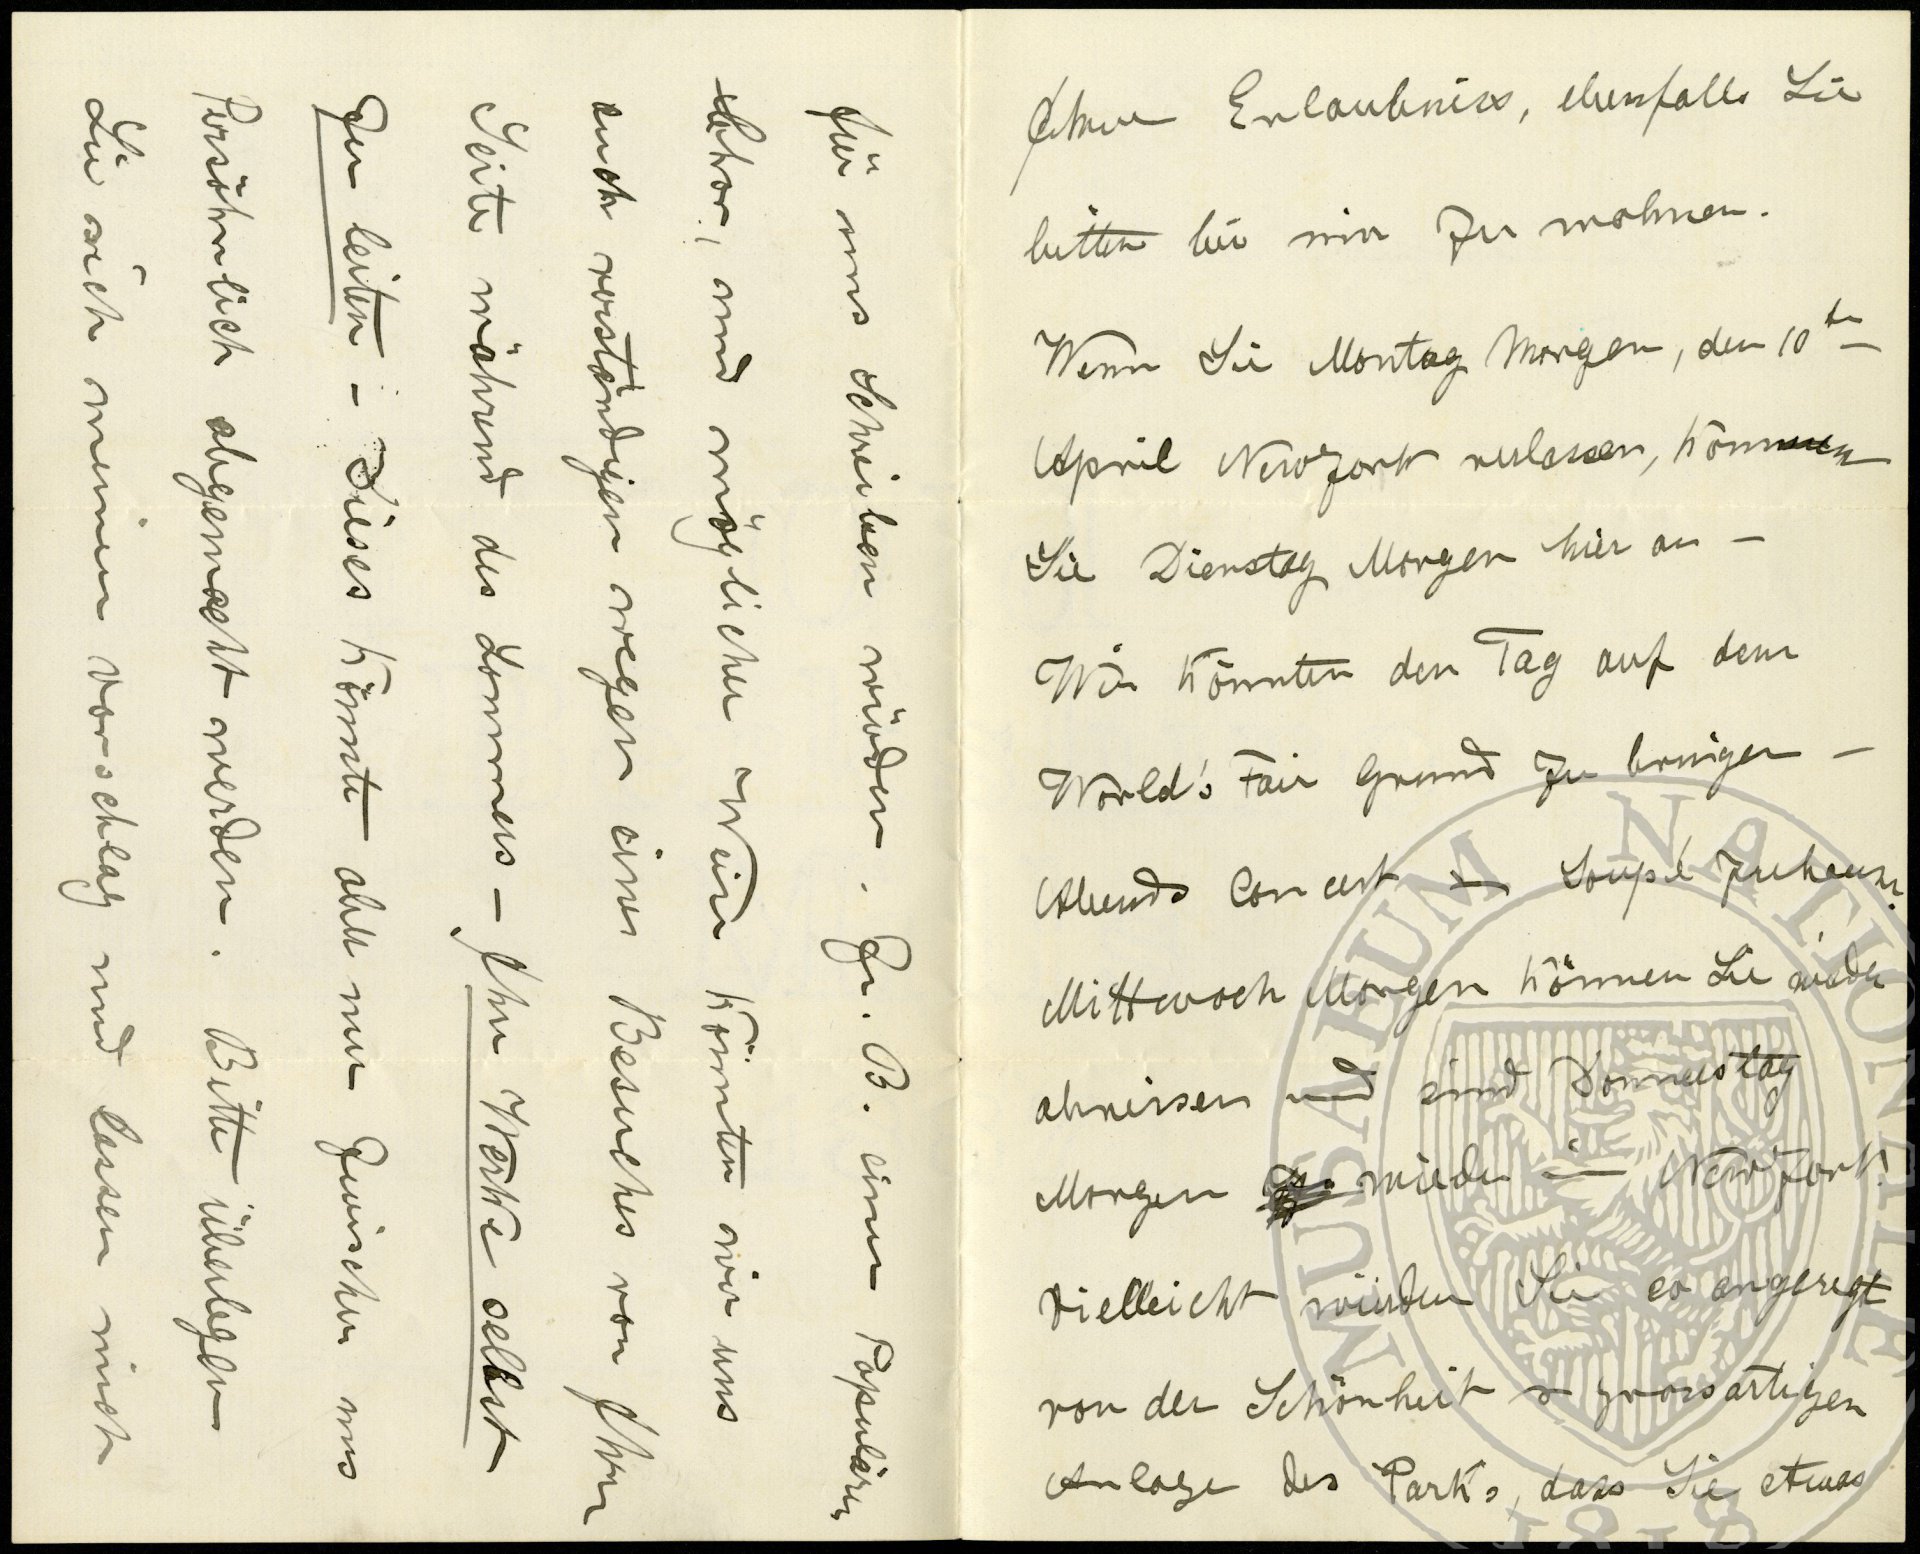 Ihrer Erlaubniss, ebenfalls Sie
bitten bei mir zu wohnen.
Wenn Sie Montag Morgen, den 10te
April NewYork verlassen, kommen
Sie Dienstag Morgen hier an –
Wir könnten den Tag auf dem
World's Fair Grund zu bringen –
Abends Concert – Soupé zuhause.
Mittwoch Morgen können Sie wieder
abreisen und sind Donnerstag
Morgen wieder in NewYork!
Vielleicht würden Sie so angeregt
von der Schönheit & grossartigen
Anlage des Parks, dass Sie etwas
für uns schreiben würden. Zu. B. einen Populären
Chor, und möglicher Weise könnten wir uns
auch verständigen wegen eines Besuches von Ihrer
Seite während des Sommers – Ihre Werke selbst
zu leiten – Dieses könnte aber nur zwischen uns
Persöhnlich abgemacht werden. Bitte überlegen
Sie sich meinen vorschlag und lassen mich
MUSAEUM NATIONALE
1818